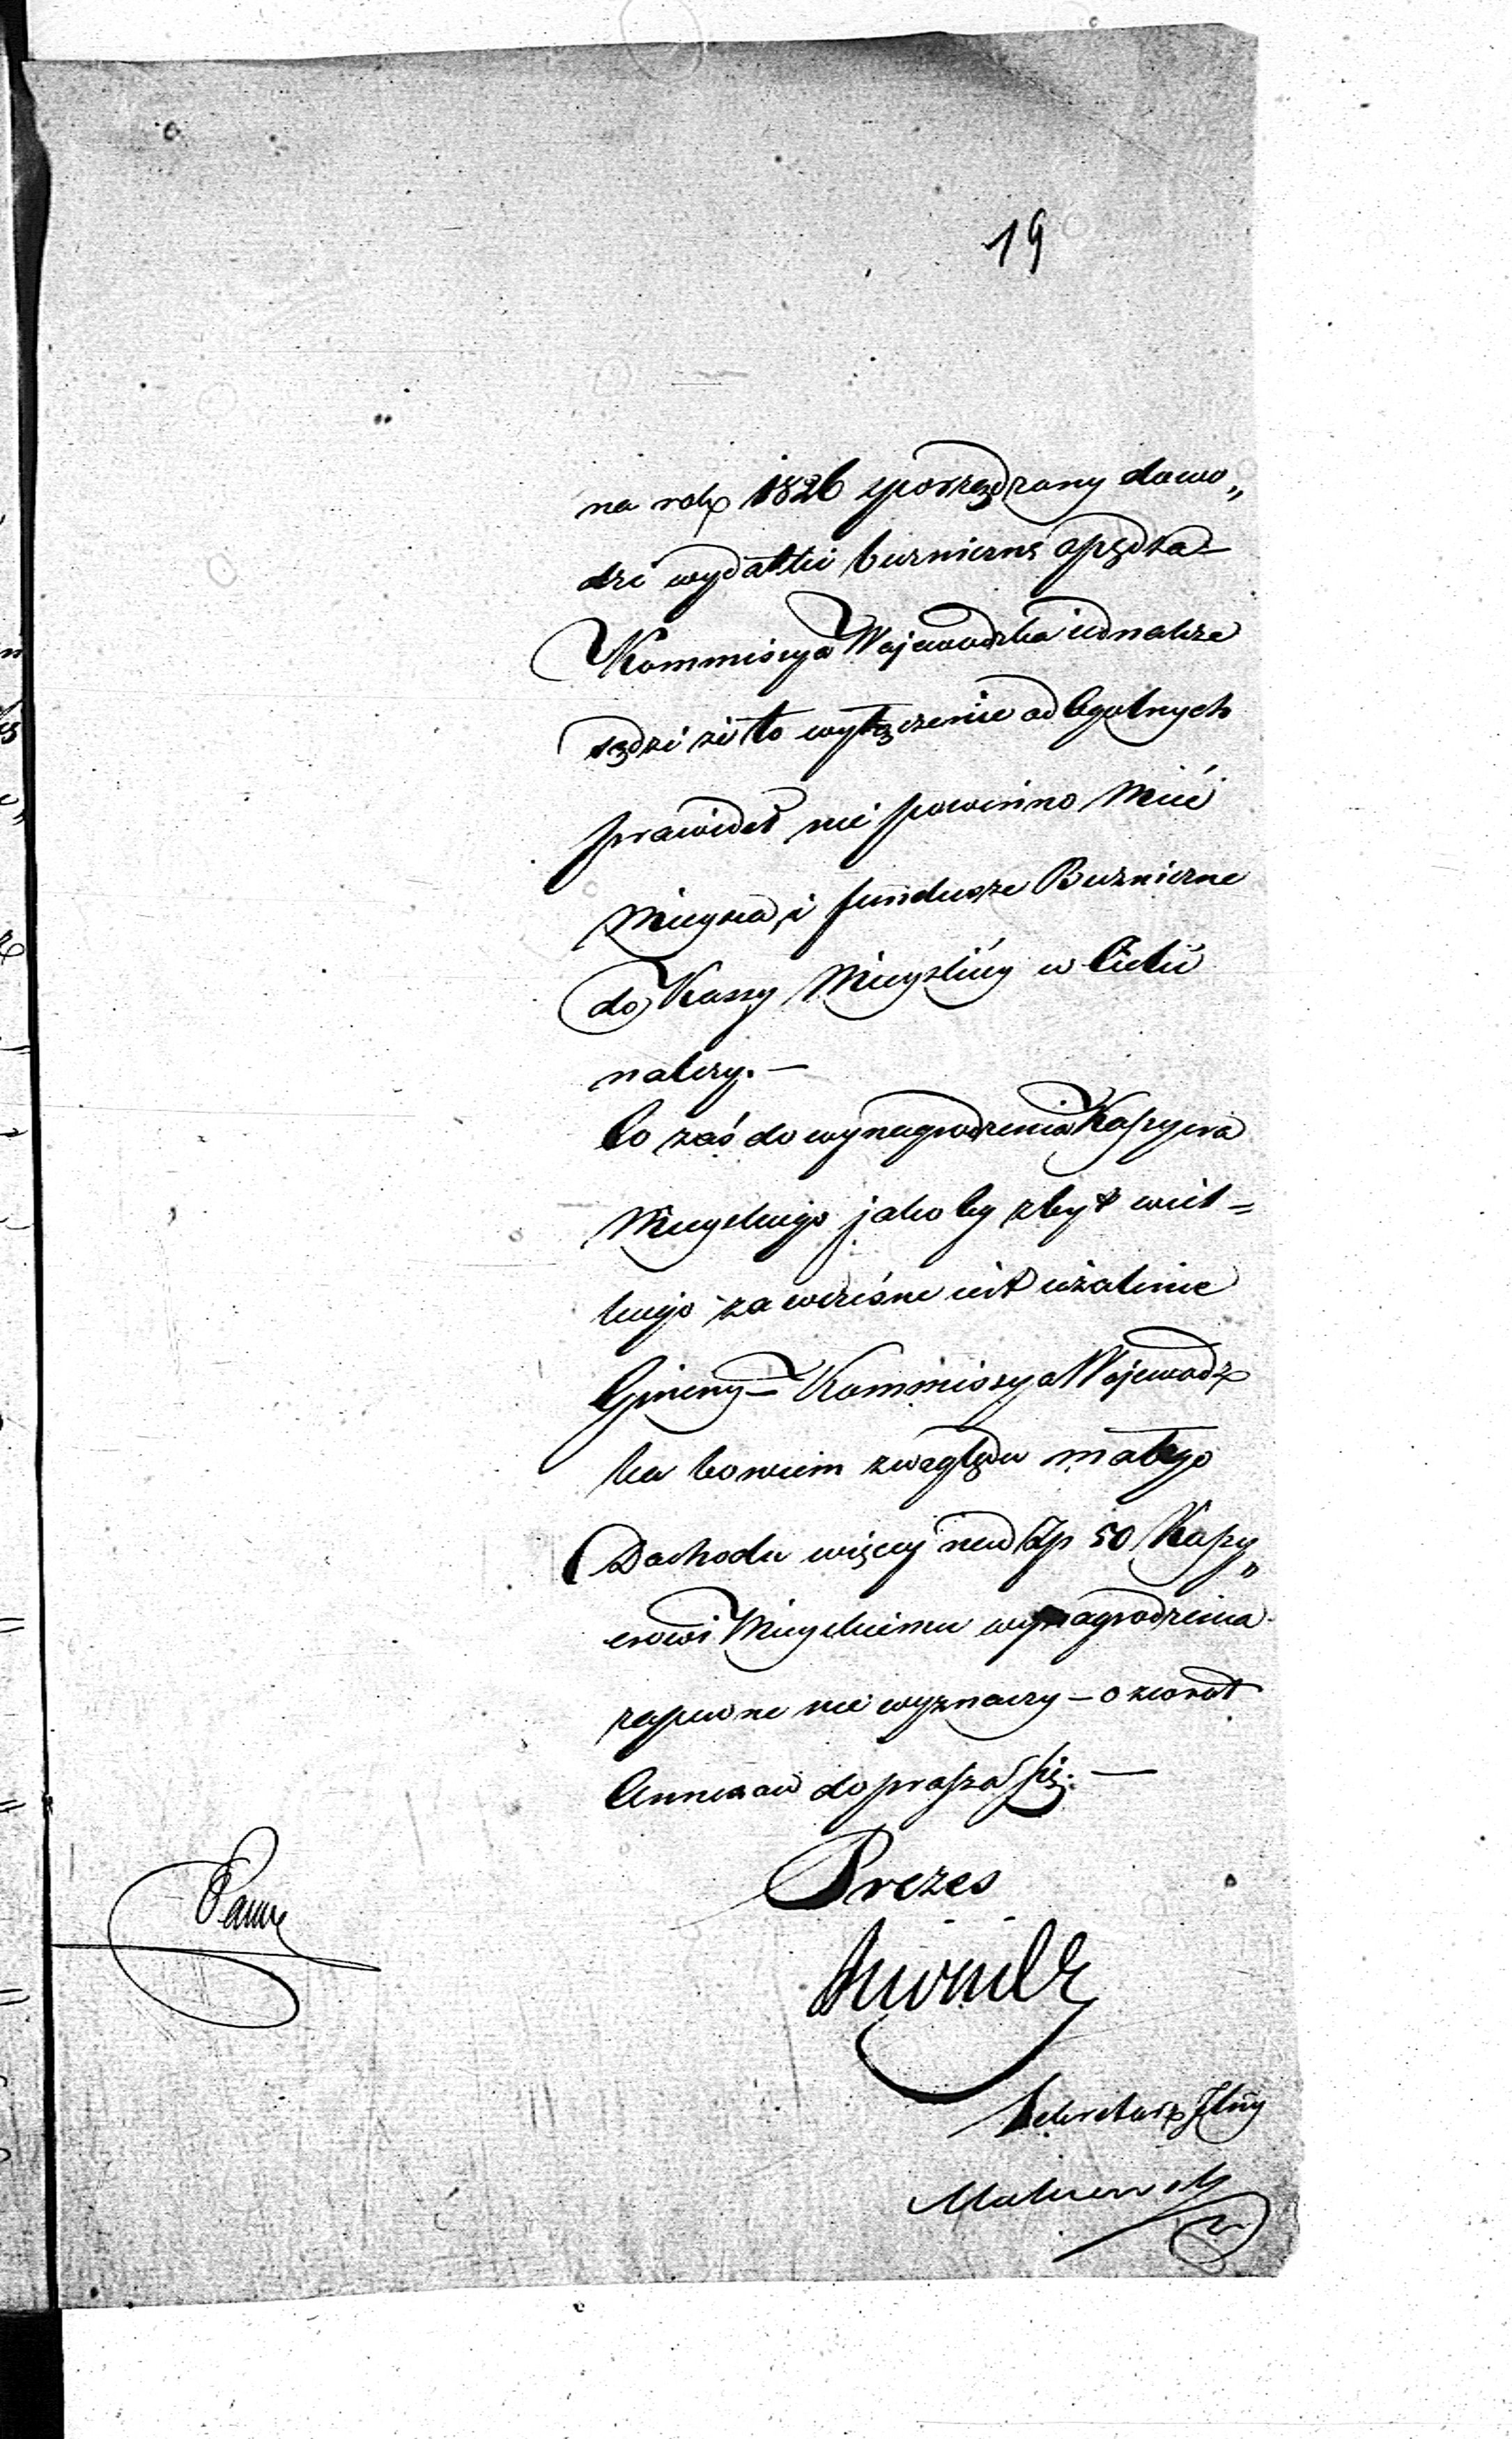 19
na rok 1826 sporządzony dowo„
dzi wydatki buznicze opędza –
Kommissya Wojewodzka iednakże
sądzi że to wyłączenie od ogolnych
prawideł nie powinno mieć
mieysca, i fundusze Bużnicze
do Kassy Mieyskiey w Całości
należy. –
Co zaś do wynagrodzenia Kassyera
Mieyskiego jakoby zbyt wiel=
kiego za wczesne iest użalenie
Gminy – Kommissya Wojewodz
ka bowiem z względu małego
Dochodu więcey nad Zp 50 Kassy„
erowi Mieyskiemu wynagrodzenia
zapewne nie wyznaczy – o zwrot
Annexow doprasza się. –
Prezes
Sekretarz Jlny